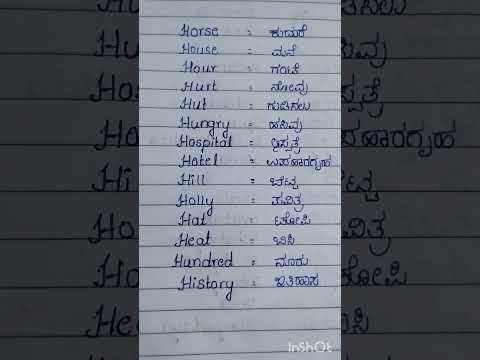 Horse = ಕುದುರೆ
House = ಮನೆ
Hour = ಗಂಟೆ
Hurt = ನೋವು
Hut = ಗುಡಿಸಲು
Hungry = ಹಸಿವು
Hospital = ಆಸ್ಪತ್ರೆ
Hotel = ಉಪಹಾರಗೃಹ
Hill = ಬೆಟ್ಟ
Holly = ಪವಿತ್ರ
Hat = ಟೋಪಿ
Heat = ಬಿಸಿ
Hundred = ನೂರು
History = ಇತಿಹಾಸ
InShOt